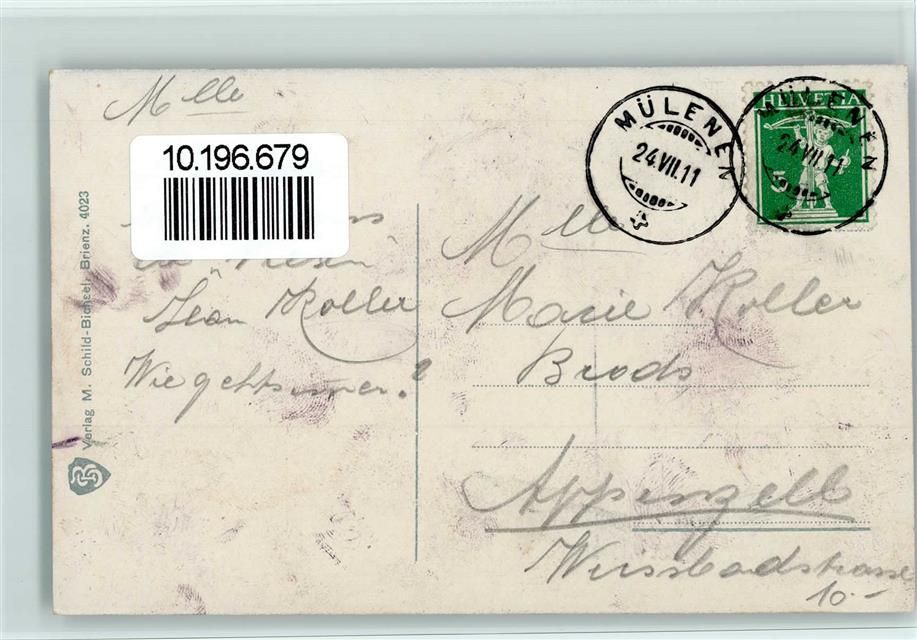 Mlle
10.196.679
Jean Koller
Wie geht's immer?
Verlag M. Schild-Bichsel, Brienz. 4023
MÜLENEN
24.VII.11
MÜLENEN
24.VII.11
HELVETIA
Mlle
Marie Koller
Brods
Appenzell
Weissbadstrasse
10.-